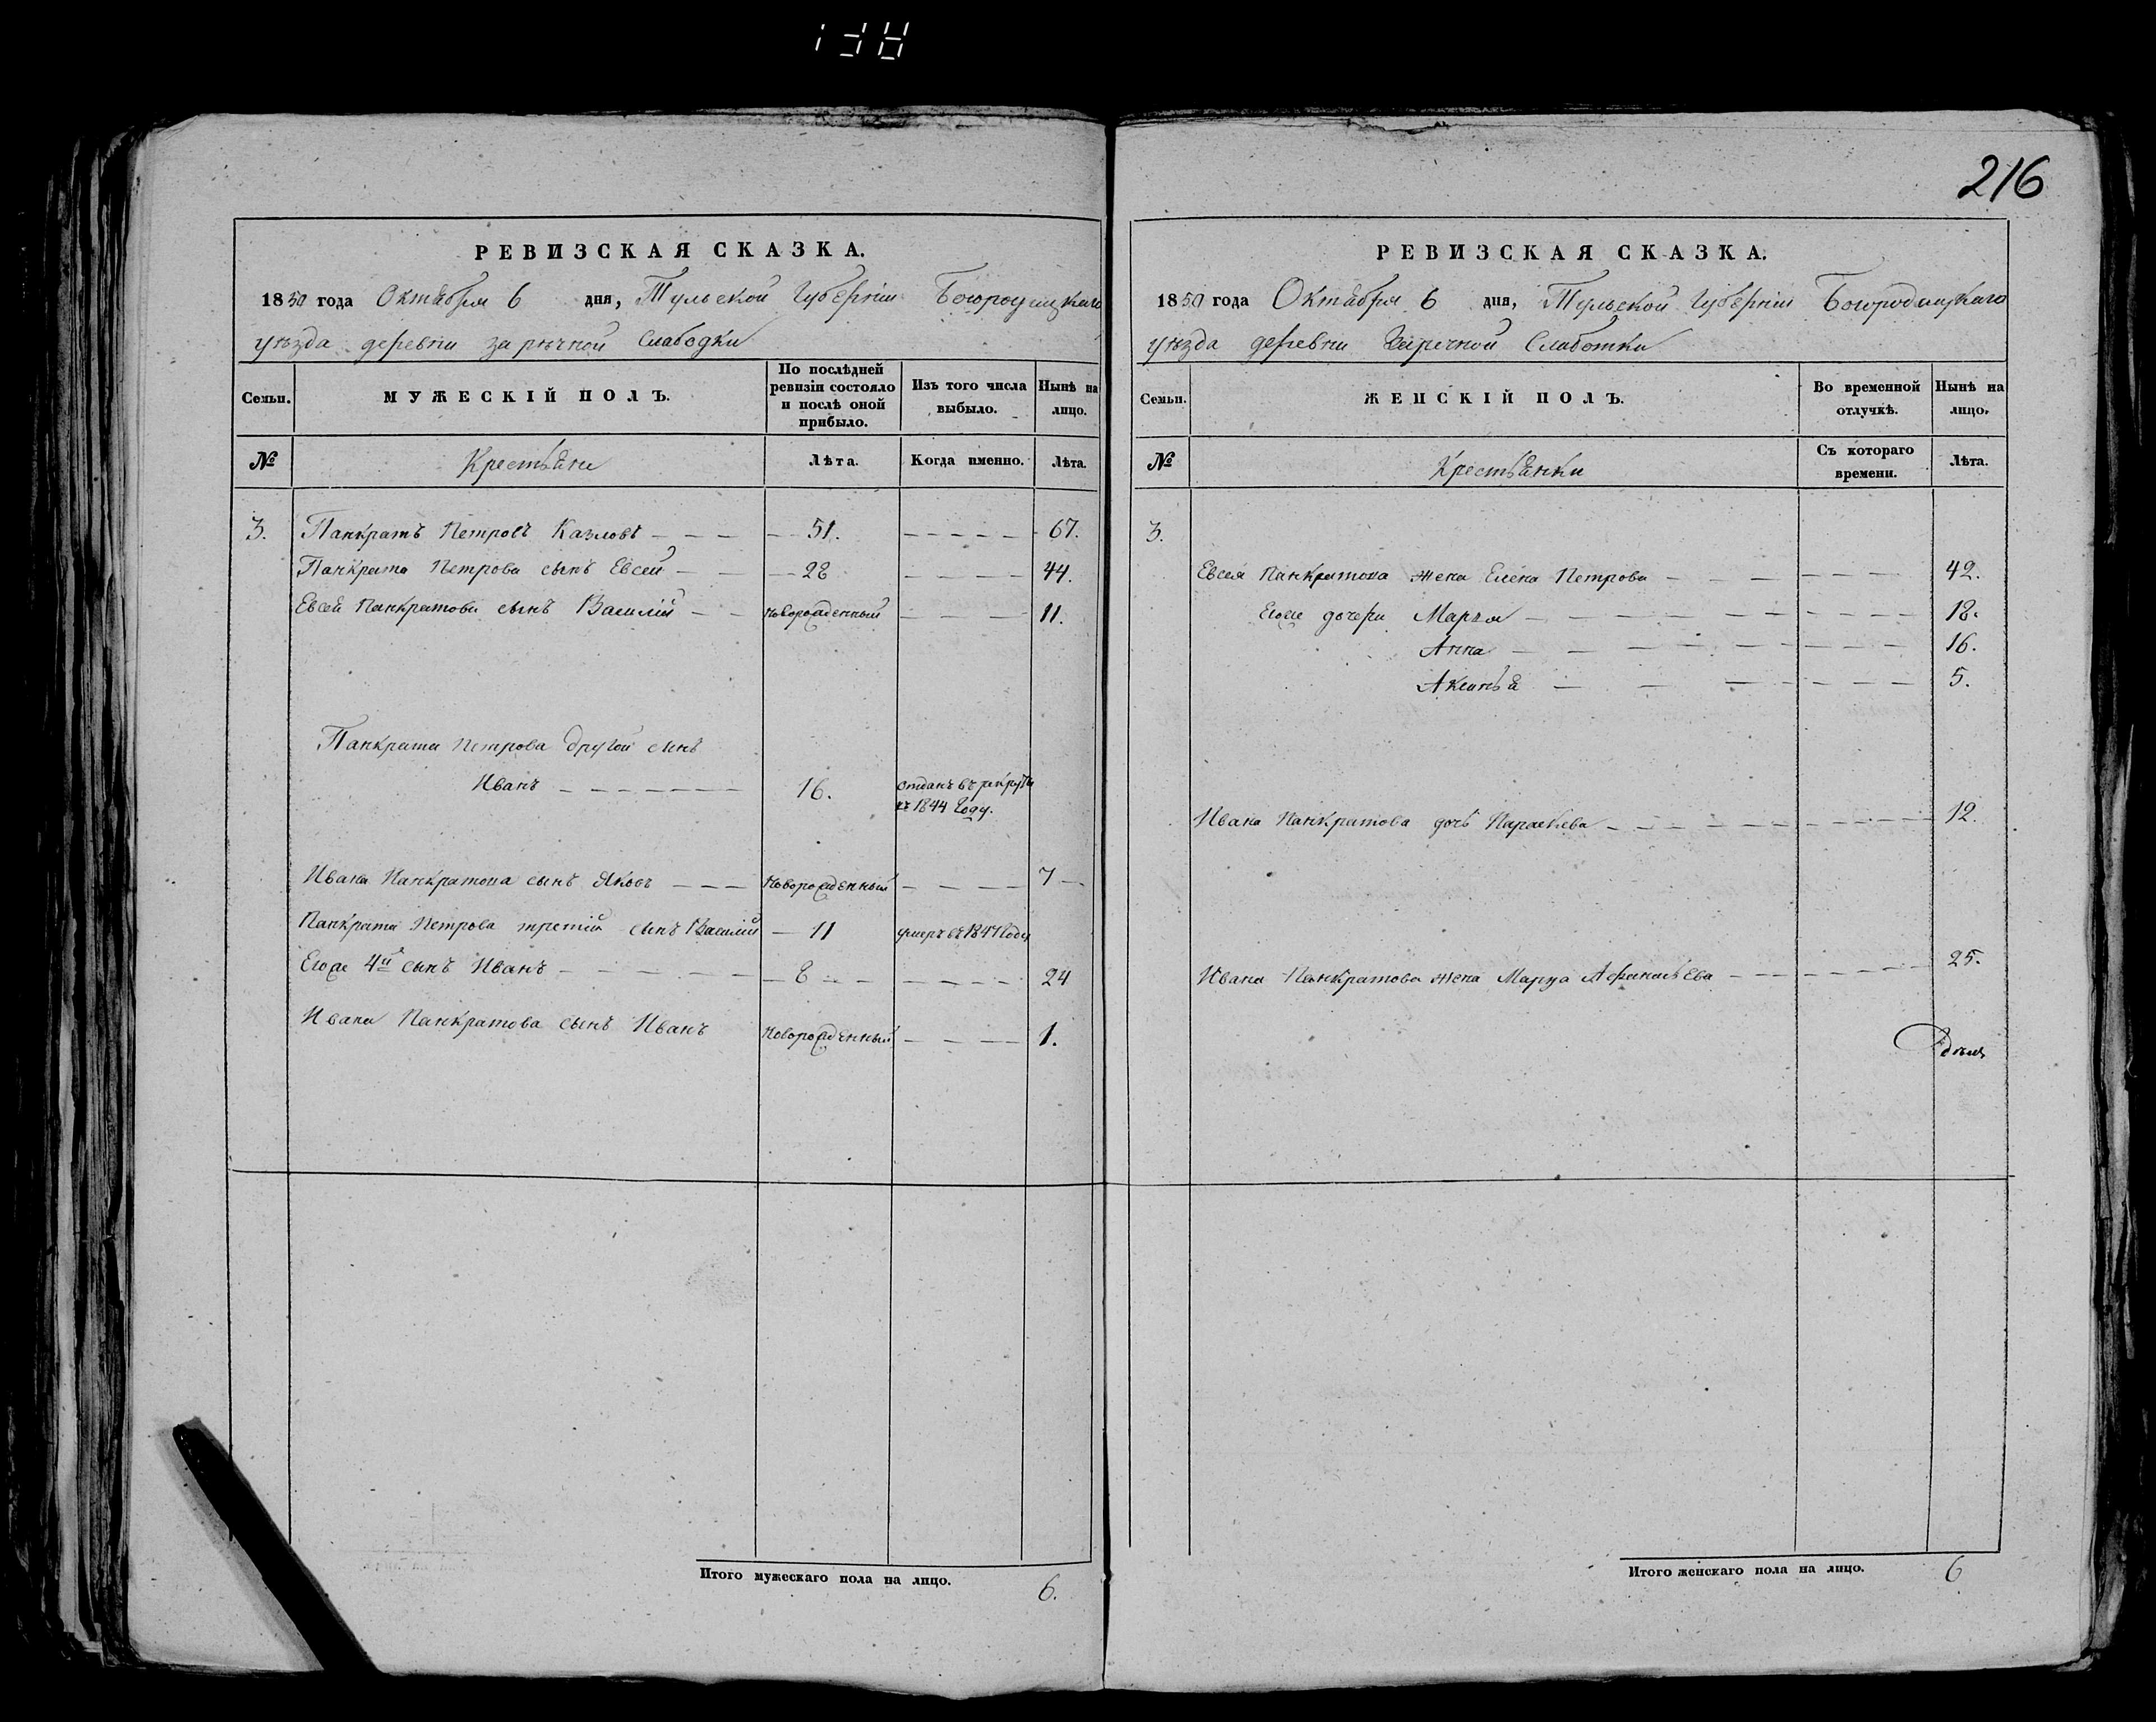 216
РЕВИЗСКАЯ СКАЗКА.
1850 года Октября 6 дня, Тульской Губерніи Богородицкаго
уѣзда деревни зарѣчной Слабодки
Семьи.
МУЖЕСКІЙ ПОЛЪ.
По послѣдней ревизіи состояло и послѣ оной прибыло.
Изъ того числа выбыло.
Нынѣ на лицо.
№
Крестьяни
Лѣта.
Когда именно.
Лѣта.
3. Панкратъ Петровъ Казловъ — — — 51. — — — — — 67.
Панкрата Петрова сынъ Евсей — — 28 — — — — 44.
Евсея Панкратова сынъ Василій — — новорожденный — — — — 11.
Панкрата Петрова другой сынъ
Иванъ — — — — — — 16. отданъ въ рекруты
въ 1844 Году.
Ивана Панкратова сынъ Яковъ — — — Новорожденный — — — — 7 —
Панкрата Петрова третій сынъ Василій — 11 умеръ въ 1847 Году
Егоже 4й сынъ Иванъ — — — — — 8 — — — — — — 24
Ивана Панкратова сынъ Иванъ Новорожденный — — — — 1.
Итого мужескаго пола на лицо. 6.
РЕВИЗСКАЯ СКАЗКА.
1850 года Октября 6 дня, Тульской Губерніи Богородицкаго
уѣзда деревни Заречной Слаботки
Семьи.
ЖЕНСКІЙ ПОЛЪ.
Во временной отлучкѣ.
Нынѣ на лицо.
№
Крестьянки
Съ котораго времени.
Лѣта.
3.
Евсея Панкратова жена Елена Петрова — — — — — — — 42.
Егоже дочери Марья — — — — — — — — 18.
Анна — — — — — — — — 16.
Аксинья — — — — — — — 5.
Ивана Панкратова дочь Параскева — — — — — — — 12.
Ивана Панкратова жена Марѳа Афанасьева — — — — — — 25.
Итого женскаго пола на лицо. 6